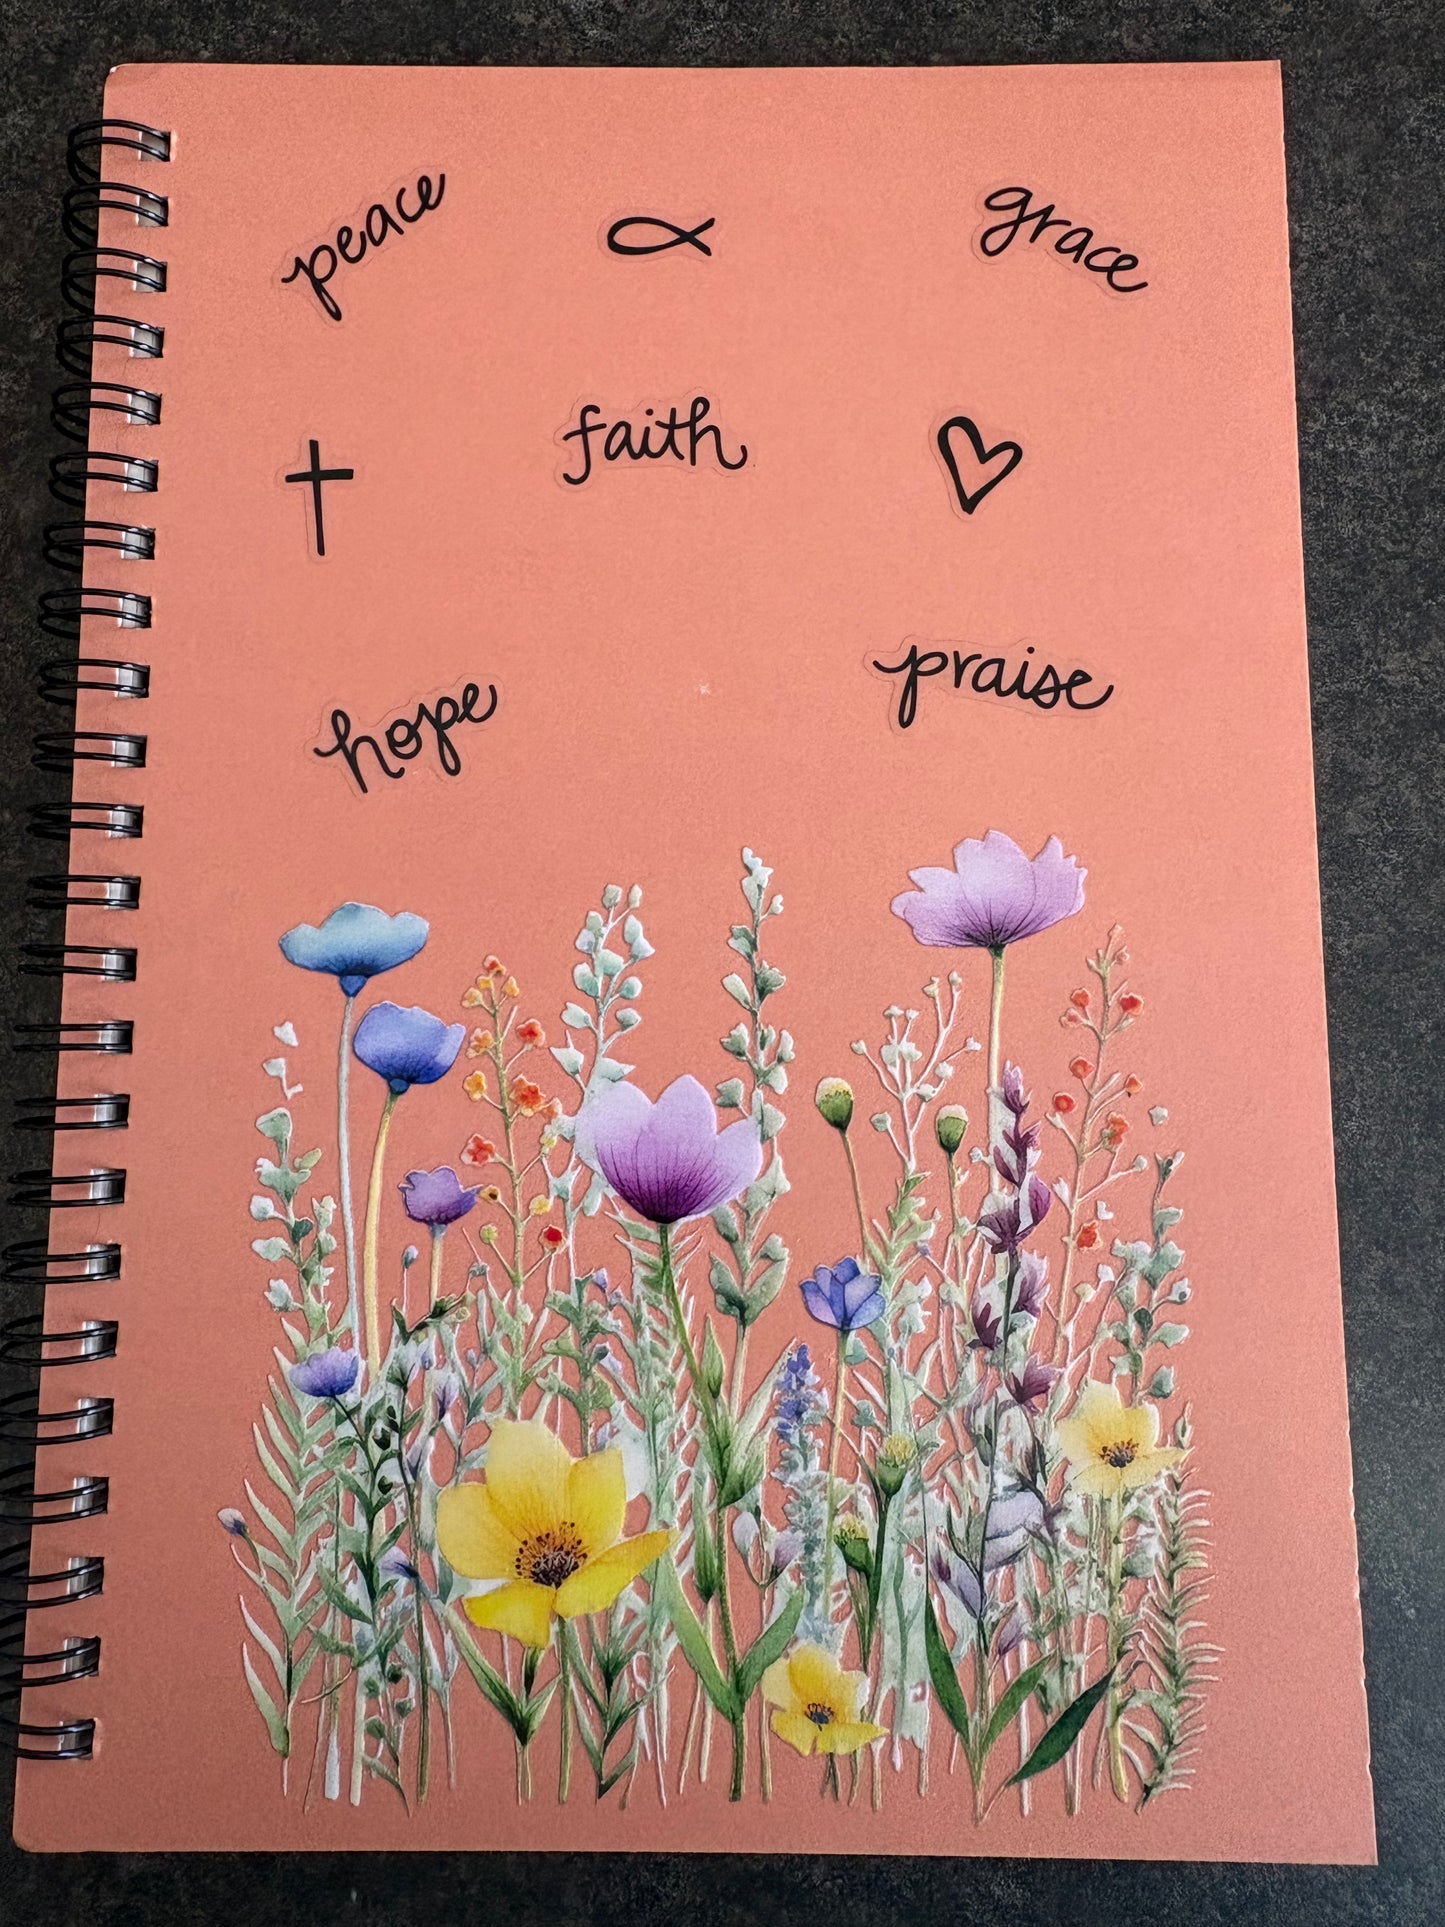 peace
grace
faith
hope
praise